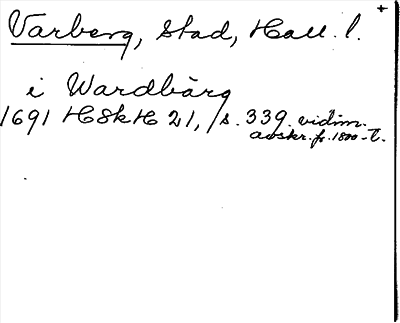 Varberg, Stad, Hall. l. +
i Wardbärg
1691 HSkH 21, s. 339. vidim.
avskr. fr. 1800-t.